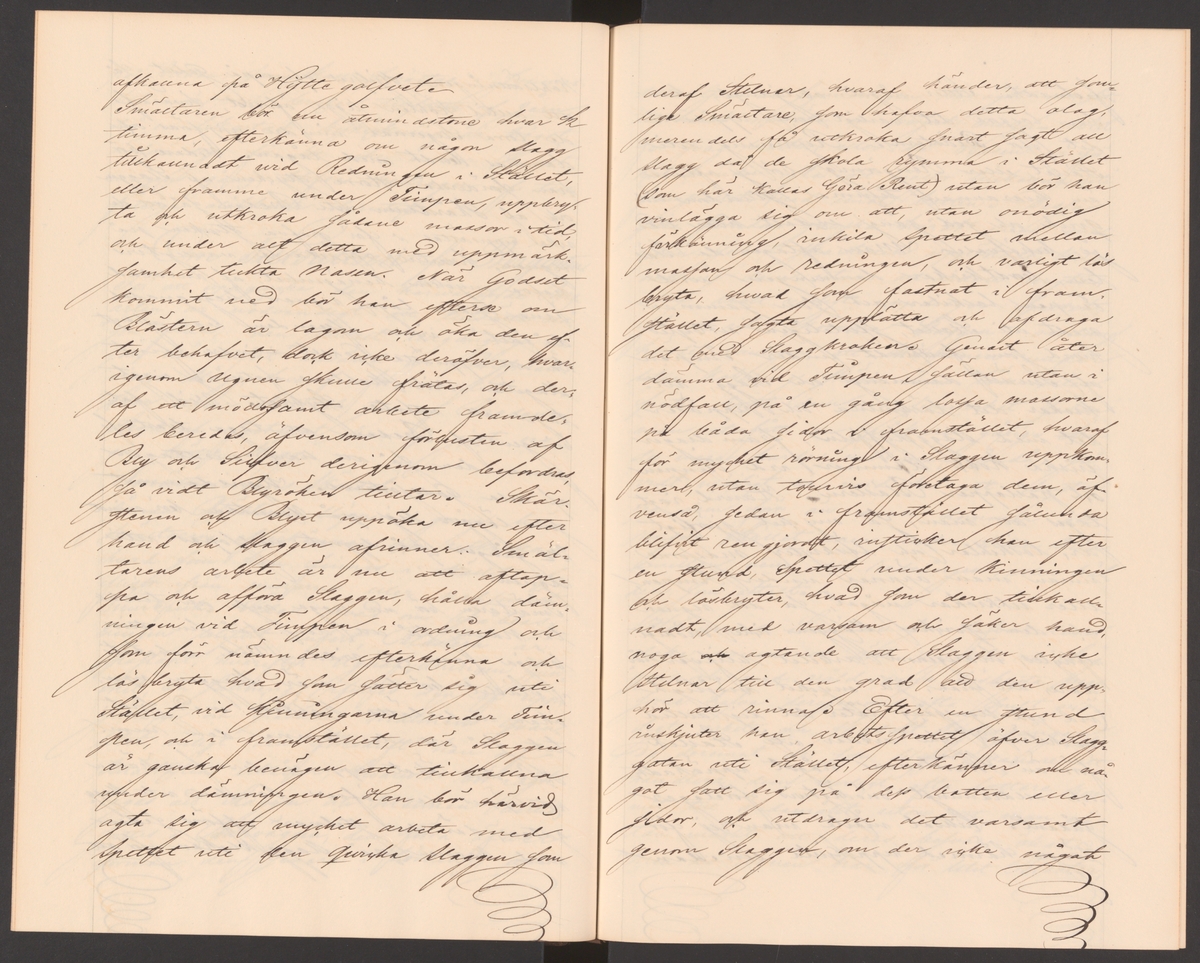 afkallna på Hyttegolfvet.
Smältaren bör nu åtminstone hvar ½
timma, efterkänna om någon slagg
tillkallnadt vid Redningen i Stället,
eller framme under Timpen, uppbry-
ta och utkroka sådane massor i tid,
och under alt detta med uppmärk-
samhet tickta Nasen. När Godset
kommit ned bör han efterse om
Blästern är lagom och öka den ef-
ter behofvet, dock icke deröfver, hvar-
igenom Ugnen skulle frätas, och der-
af ett mödosamt arbete framde-
les beredas, äfvensom förlusten af
Bly och Silfver derigenom befordras,
så vidt Blyröken tilltar. Skär-
stenen och Blyet uppöka nu efter
hand och slaggen afrinner. Smäl-
tarens arbete är nu att aftap-
pa och afföra Slaggen, hålla däm-
ningen vid Timpen i ordning och
som förr nämndes efterkänna och
lösbryta hvad som sätter sig uti
Stället, vid Kinningarna under Tim-
pen, och i framstället, där Slaggen
är ganska benägen att tillkallna
under dämningen. Han bör härvid
agta sig att mycket arbeta med
spettet uti den qvicka slaggen som
deraf Stelnar, hvaraf händer, att som-
lige Smältare, som hafva detta olag,
merendels få utkroka snart sagt all
slagg då de skola rymma i Stället
(som här kallas Göra Rent) utan bör han
vinlägga sig om att, utan onödig
förkänning, inkila spettet mellan
massan och redningen, och varligt lös
bryta, hvad som fastnat i fram-
stället, sagta upplätta och afdraga
det med Slaggkroken. Genast åter
dämma vid Timpen, sällan utan i
nödfall, på en gång lossa massorne
på båda sidor i framstället, hvaraf
för mycket rörning i Slaggen uppkom-
mer, utan tourvis företaga dem, äf-
venså, sedan i framstället sålunda
blifvit rengjordt, insticker han efter
en stund, spettet under Kinningen
och lösbryter, hvad som der tillkall-
nadt, med varsam och säker hand,
noga agtande att Slaggen icke
Stelnar till den grad att den upp-
hör att rinna. Efter en stund
inskjuter han arbetsspettet öfver Slagg-
gatan uti Stället, efterkänner om nå-
got satt sig på dess botten eller
sidor, och utdrager det varsamt
genom Slaggen, om der icke något